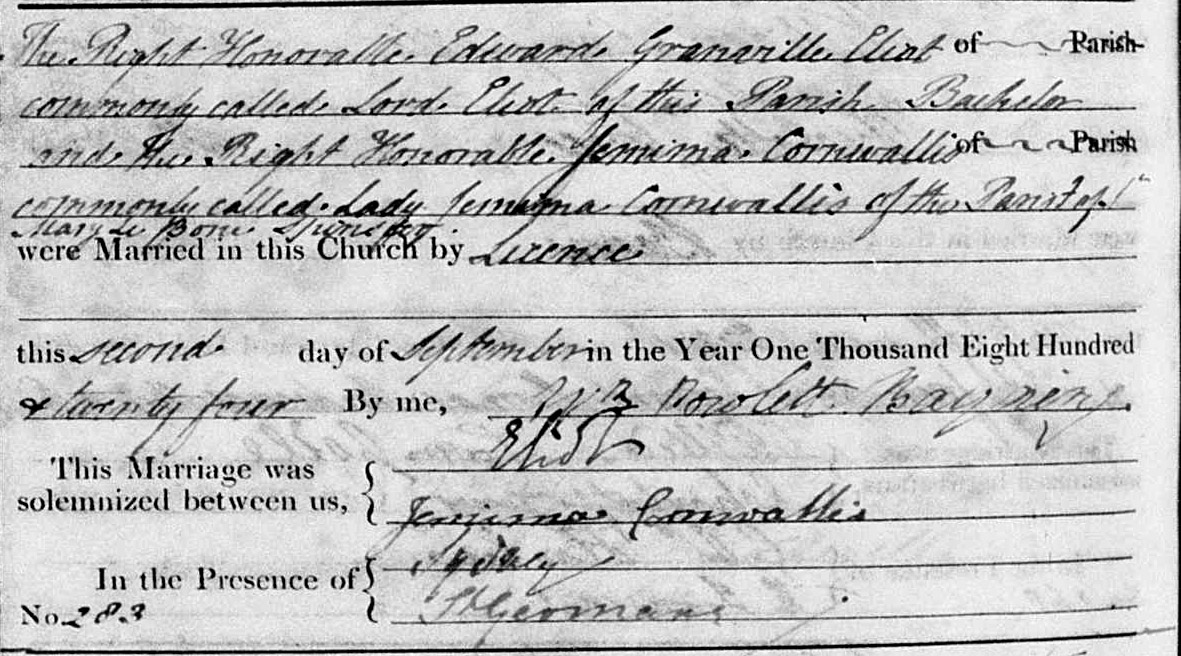 The Right Honorable Edward Granville Eliot of Parish
commonly called Lord Eliot of this Parish Bachelor
and the Right Honorable Jemima Cornwallis of Parish
commonly called Lady Jemima Cornwallis of the Parish of St
Mary le Bone Spinster.
were Married in this Church by Licence
this second day of September in the Year One Thousand Eight Hundred
& twenty four By me, Powlett Bayning
Eliot
This Marriage was
solemnized between us,
Jemima Cornwallis
Sydney
In the Presence of
St Germans
No. 283